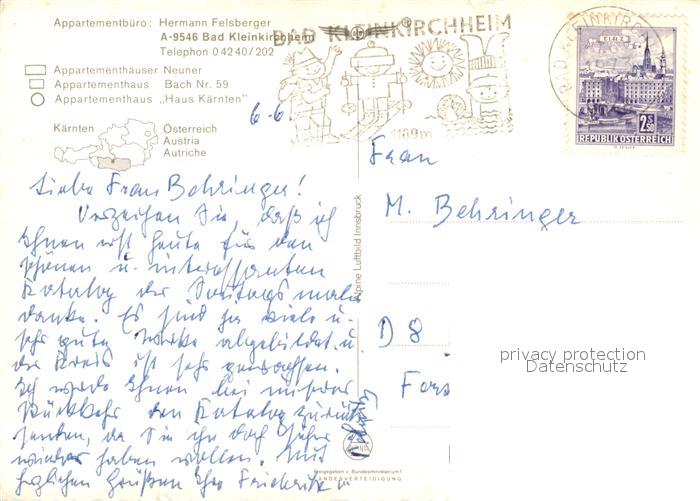 Appartementbüro: Hermann Felsberger
A-9546 Bad Kleinkirchheim
Telephon 0 42 40 / 202
Appartementhäuser Neuner
Appartementhaus Bach Nr. 59
Appartementhaus „Haus Kärnten"
Kärnten
Österreich
Austria
Autriche
BAD KLEINKIRCHHEIM
1100m
BAD KLEINKIRCH
LINZ
2.50
REPUBLIK ÖSTERREICH
6-6.
Liebe Frau Behringer!
Verzeihen Sie, daß ich
Ihnen erst heute für den
schönen u. interessanten
Katalog der Sonntagsmaler
danke. Es sind ja viele u.
sehr gute Werke abgebildet u.
der Kreis ist sehr gewachsen.
Ich werde Ihnen bei unserer
Rückkehr den Katalog zurück
senden, da Sie ihn doch sicher
wieder haben wollen. Mit
herzlichen Grüßen Ihre Friederike u.
Frau
M. Behringer
D 8
Fors
Alpine Luftbild Innsbruck
freigegeben v. Bundesministerium f.
LANDESVERTEIDIGUNG
privacy protection
Datenschutz